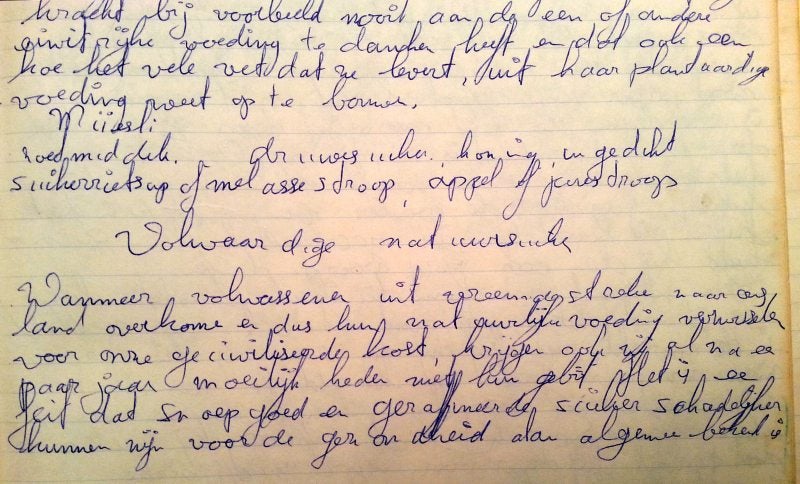 kracht bij voorbeeld nooit aan de een of andere
eiwitrijke voeding te danken heeft en dat ook een
koe het vele vet dat ze levert, uit haar plantaardige
voeding weet op te bouwen.
Müesli
zoetmiddel. - druivesuiker, honing, ingedikt
suikerrietsap of melassestroop, appel of perestroop
Volwaardige natuursuiker
Wanneer volwassenen uit vreemde streke naar ons
land overkome en dus hun natuurlijke voeding verwisselen
voor onze geciviliseerde kost, krijgen ook zij al na ee
paar jaar moeilijkheden met hun gebit Het is ee
feit dat snoepgoed en geraffineerde suiker schadelijker
kunnen zijn voor de gezondheid dan algemee bekend is